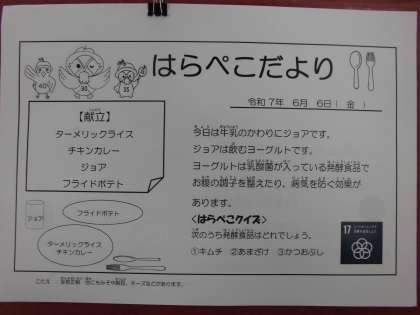 はらぺこだより
令和7年 6月 6日( 金 )
【献立】
ターメリックライス
チキンカレー
ジョア
フライドポテト
今日は牛乳のかわりにジョアです。
ジョアは飲むヨーグルトです。
ヨーグルトは乳酸菌が入っている発酵食品で
お腹の調子を整えたり、病気を防ぐ効果が
あります。
<はらぺこクイズ>
次のうち発酵食品はどれでしょう。
①キムチ ②あまざけ ③かつおぶし
ジョア
フライドポテト
ターメリックライス
チキンカレー
17
こたえ : 全部正解 他にもみそや納豆、チーズなどがあります。